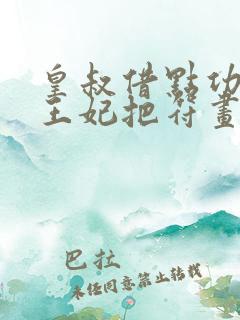 皇叔借點功
王妃把符畫
巴拉
未經同意禁止轉載